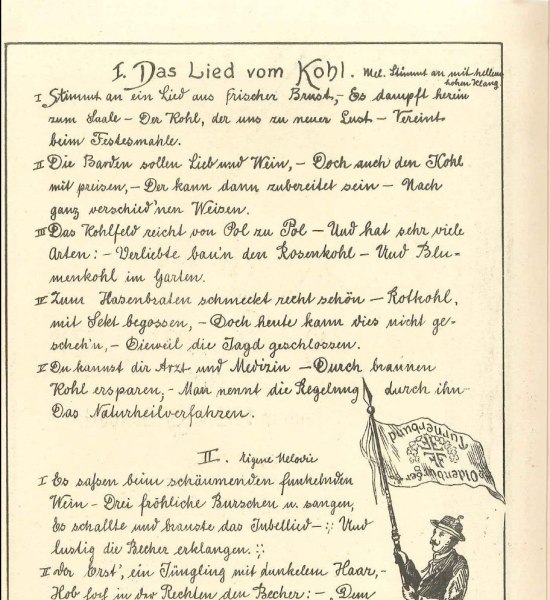 I. Das Lied vom Kohl. Mel. Stimmt an mit hellem
hohen Klang.
I Stimmt an ein Lied aus frischer Brust, – Es dampft herein
zum Saale – Der Kohl, der uns zu neuer Lust – Vereint
beim Festesmahle.
II Die Barden sollen Lieb und Wein, – Doch auch den Kohl
mit preisen, – Der kann dann zubereitet sein – Nach
ganz verschied'nen Weisen.
III Das Kohlfeld reicht von Pol zu Pol – Und hat sehr viele
Arten: – Verliebte bau'n den Rosenkohl – Und Blu-
menkohl im Garten.
IV Zum Hasenbraten schmeckt recht schön – Rotkohl,
mit Sekt begossen, – Doch heute kann dies nicht ge-
scheh'n, – Dieweil die Jagd geschlossen.
V Du kannst dir Arzt und Medizin – Durch braunen
Kohl ersparen, – Man nennt die Regelung durch ihn –
Das Naturheilverfahren.
II. Eigene Melodie
I Es saßen beim schäumenden funkelnden
Wein – Drei fröhliche Burschen u. sangen,
Es schallte und brauste das Jubellied – :,: Und
lustig die Becher erklangen. :,:
II Der Erst', ein Jüngling mit dunkelem Haar, –
Hob hoch in der Rechten den Becher: – "Dem
Oldenburger
Turnerbund